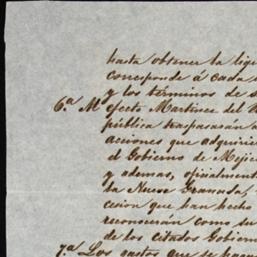 hasta obtener la liqu
corresponde á cada
y los términos de s
6.ª Al efecto Martinez del
pública traspasarán
acciones que adquirie
el Gobierno de Mejic
y ademas, oficialment
da Nueva Granada,
cesion que han hecho
reconocerán como su
de los citados Gobiern
7.ª Los gastos que se haga